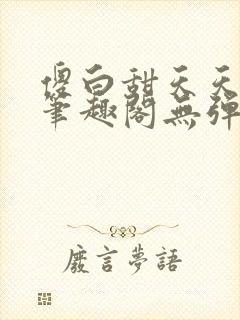 傻白甜天天
筆趣閣無彈
廢言夢語